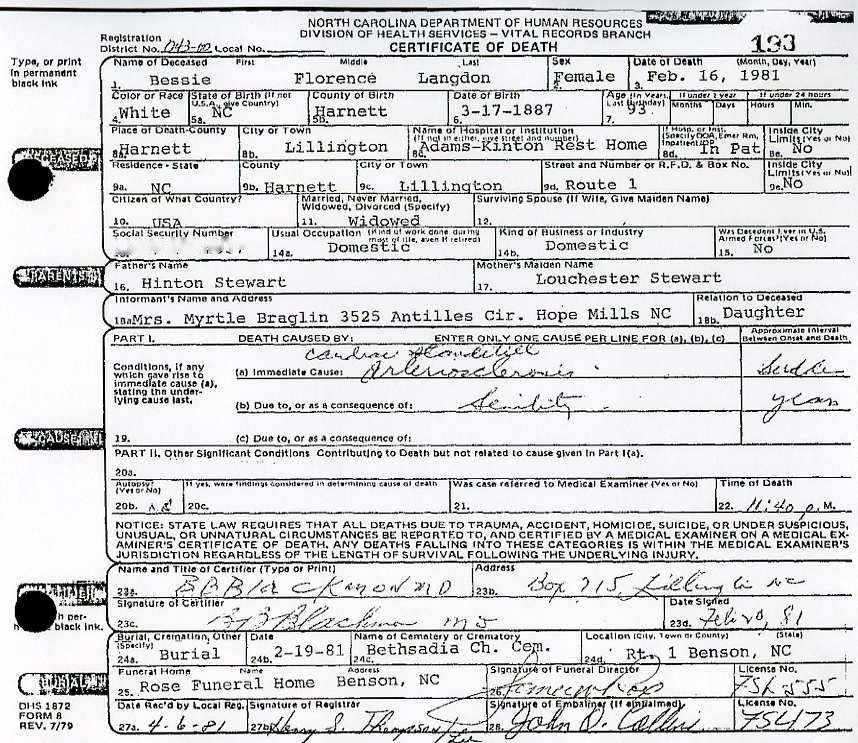 NORTH CAROLINA DEPARTMENT OF HUMAN RESOURCES
DIVISION OF HEALTH SERVICES – VITAL RECORDS BRANCH
CERTIFICATE OF DEATH
193
Registration
District No. 043-00 Local No.
Type, or print
in permanent
black ink
Name of Deceased First Middle Last Sex Date of Death (Month, Day, Year)
1. Bessie Florence Langdon 2. Female 3. Feb. 16, 1981
Color or Race State of Birth (If not U.S.A., give Country) County of Birth Date of Birth Age (In Years, Last Birthday) If under 1 year If under 24 hours
Months Days Hours Min.
4. White 5a. NC 5b. Harnett 6. 3-17-1887 7. 93
Place of Death-County City or Town Name of Hospital or Institution (If not in either, give street and number) If Hosp. or Inst. (Specify DOA, Emer Rm, Inpatient, OP Inside City Limits (Yes or No)
8a. Harnett 8b. Lillington 8c. Adams-Kinton Rest Home 8d. In Pat 8e. No
Residence - State County City or Town Street and Number or R.F.D. & Box No. Inside City Limits (Yes or No)
9a. NC 9b. Harnett 9c. Lillington 9d. Route 1 9e. No
Citizen of What Country? Married, Never Married, Widowed, Divorced (Specify) Surviving Spouse (If Wife, Give Maiden Name)
10. USA 11. Widowed 12.
Social Security Number Usual Occupation (Kind of work done during most of life, even if retired) Kind of Business or Industry Was Decedent Ever in U.S. Armed Forces? (Yes or No)
14a. Domestic 14b. Domestic 15. No
PARENTS
Father's Name Mother's Maiden Name
16. Hinton Stewart 17. Louchester Stewart
Informant's Name and Address Relation to Deceased
18a. Mrs. Myrtle Braglin 3525 Antilles Cir. Hope Mills NC 18b. Daughter
PART I. DEATH CAUSED BY: ENTER ONLY ONE CAUSE PER LINE FOR (a), (b), (c) Approximate Interval Between Onset and Death
Cardiac Standstill
Conditions, if any
which gave rise to
immediate cause (a),
stating the under-
lying cause last.
(a) Immediate Cause: Arteriosclerosis
(b) Due to, or as a consequence of: Senility years
CAUSE
19. (c) Due to, or as a consequence of:
PART II. Other Significant Conditions Contributing to Death but not related to cause given in Part I(a).
20a.
Autopsy? (Yes or No) If yes, were findings considered in determining cause of death Was case referred to Medical Examiner (Yes or No) Time of Death
20b. no 20c. 21. 22. 11:40 p. M.
NOTICE: STATE LAW REQUIRES THAT ALL DEATHS DUE TO TRAUMA, ACCIDENT, HOMICIDE, SUICIDE, OR UNDER SUSPICIOUS,
UNUSUAL, OR UNNATURAL CIRCUMSTANCES BE REPORTED TO, AND CERTIFIED BY A MEDICAL EXAMINER ON A MEDICAL EX-
AMINER'S CERTIFICATE OF DEATH, ANY DEATHS FALLING INTO THESE CATEGORIES IS WITHIN THE MEDICAL EXAMINER'S
JURISDICTION REGARDLESS OF THE LENGTH OF SURVIVAL FOLLOWING THE UNDERLYING INJURY.
Name and Title of Certifier (Type or Print) Address
23a. B B Blackmon MD 23b. Box 715, Lillington NC
Signature of Certifier Date Signed
23c. BB Blackmon MD 23d. Feb 20, 81
black ink.
Burial, Cremation, Other (Specify) Date Name of Cemetery or Crematory Location (City, Town or County) (State)
24a. Burial 24b. 2-19-81 24c. Bethsadia Ch. Cem. 24d. Rt. 1 Benson, NC
BURIAL
Funeral Home Name Address Signature of Funeral Director License No.
25. Rose Funeral Home Benson, NC 26.
DHS 1872
FORM 8
REV. 7/79
Date Rec'd by Local Reg. Signature of Registrar Signature of Embalmer (If embalmed) License No.
27a. 4-6-81 27b. Henry S. Thompson 28. John D. Collins